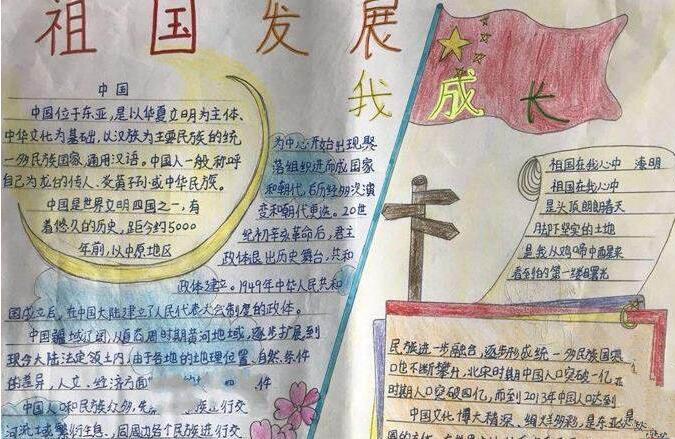 祖国发展
我成长
中国
中国位于东亚,是以华夏文明为主体、
中华文化为基础,以汉族为主要民族的统
一多民族国家,通用汉语。中国人一般称呼
自己为龙的传人、炎黄子孙或中华民族。
中国是世界文明四国之一,有
着悠久的历史,距今约5000
年前,以中原地区
为中心开始出现聚
落组织进而成国家
和朝代,后历经多次演
变和朝代更迭。20世
纪初辛亥革命后,君主
政体退出历史舞台,共和
政体建立。1949年中华人民共和
国成立后,在中国大陆建立了人民代表大会制度的政体。
中国疆域辽阔,从西周时期黄河地域,逐步扩展到
现今大陆法定领土内,由于各地的地理位置、自然条件
的差异,人文、经济方面
件
中国人口和民族众多,先
族
行交
河流域繁衍生息,同周边各个民族进行交
祖国在我心中 海明
祖国在我心中
是头顶朗朗春天
脚下坚实的土地
是我从鸡啼中醒来
看到的第一缕曙光
民族进一步融合,逐步形成统一多民族国家
口也不断攀升,北宋时期中国人口突破一亿,
时期人口突破四亿,而到2013年中国人口达到
中国文化博大精深、绚烂多彩,是东亚